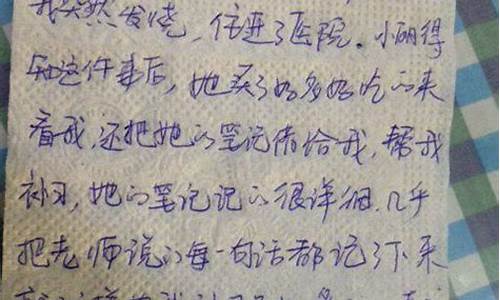 我突然发烧,住进了医院。小丽得
知这件事后,她买了好多好吃的来
看我,还把她的笔记借给我,帮我
补习,她的笔记记的很详细,几乎
把老师说的每一句话都记了下来